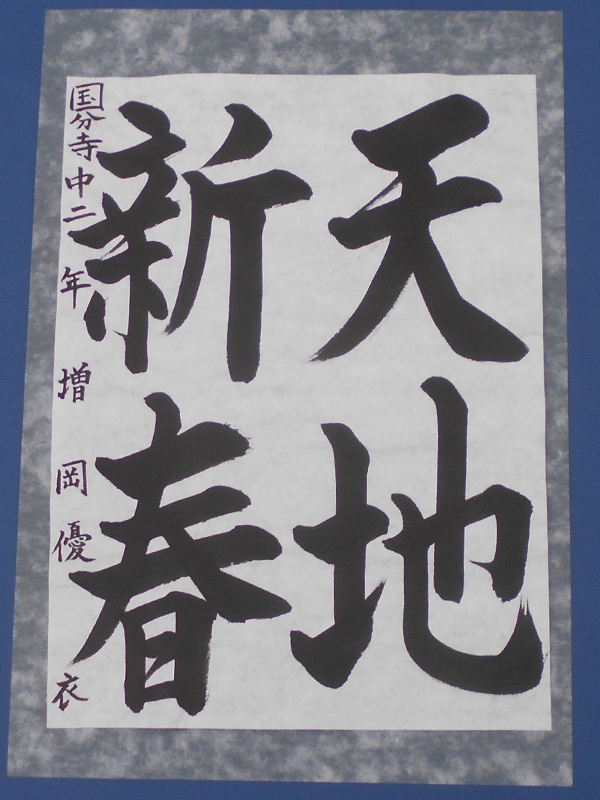 天地
新春
国分寺中二年増岡優衣